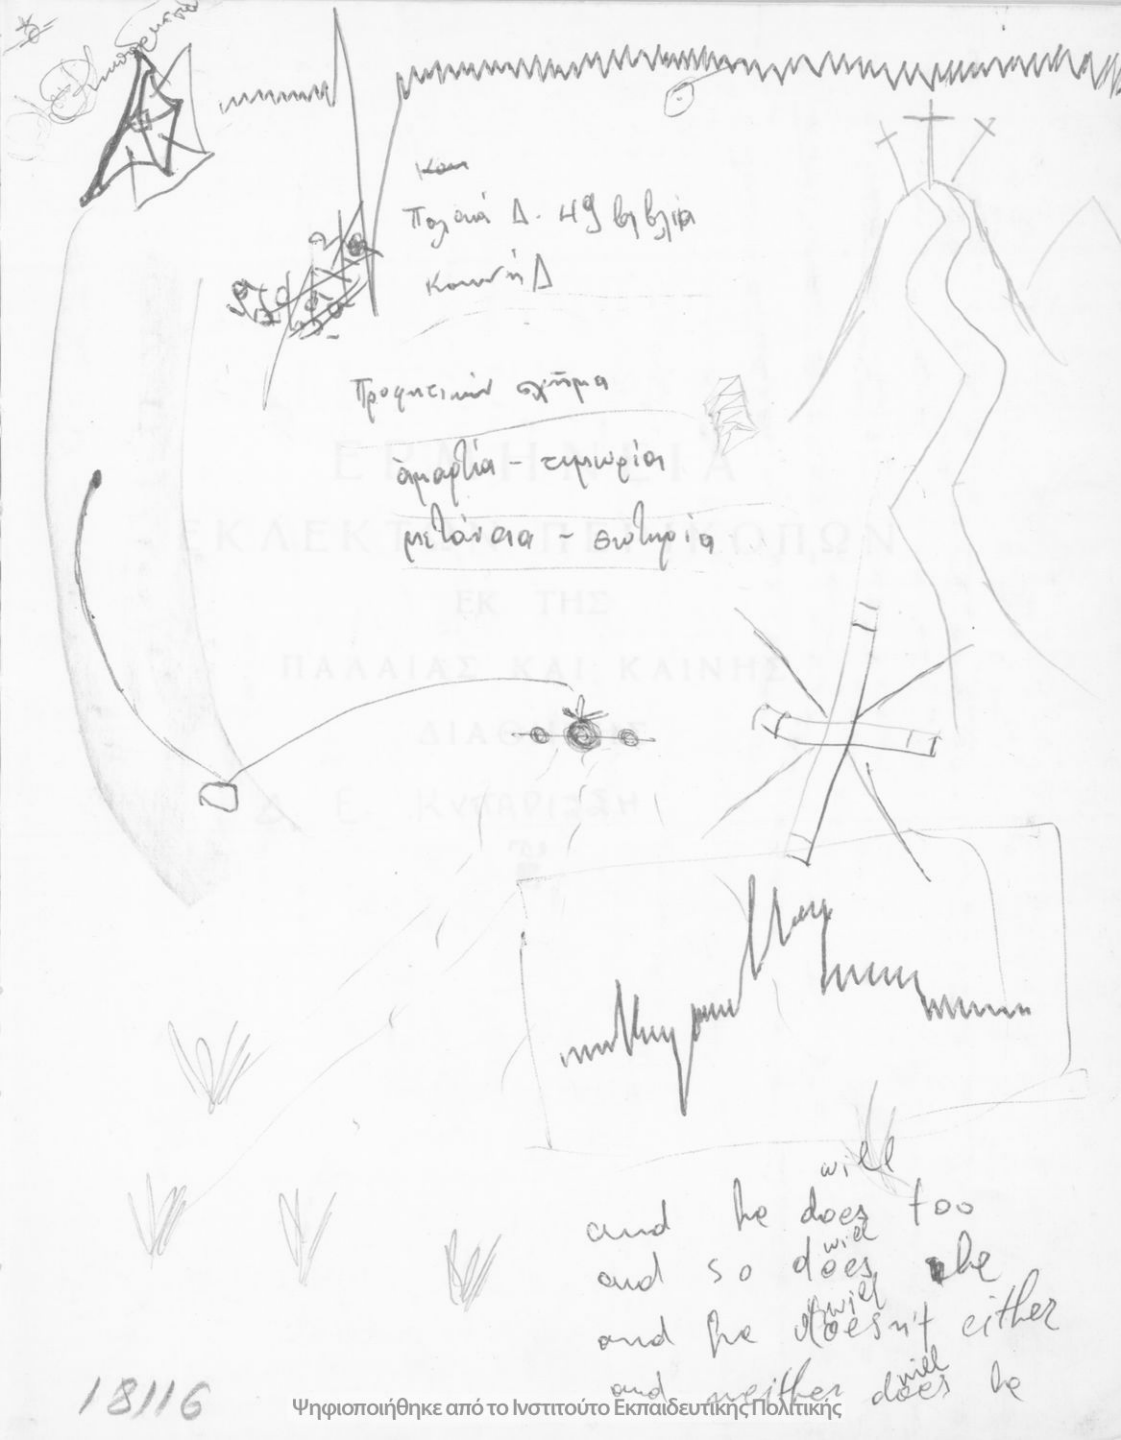 Παλαιά Δ. 49 βιβλία
Καινή Δ
Προφητικόν σχήμα
ἁμαρτία - τιμωρία
μετάνοια - σωτηρία
ΕΡΜΗΝΕΙΑ
ΕΚΛΕΚΤΩΝ ΠΕΡΙΚΟΠΩΝ
ΕΚ ΤΗΣ
ΠΑΛΑΙΑΣ ΚΑΙ ΚΑΙΝΗΣ
ΔΙΑΘΗΚΗΣ
will
and he does too
will
and so does he
will
and he doesn't either
will
and neither does he
18116
Ψηφιοποιήθηκε από το Ινστιτούτο Εκπαιδευτικής Πολιτικής